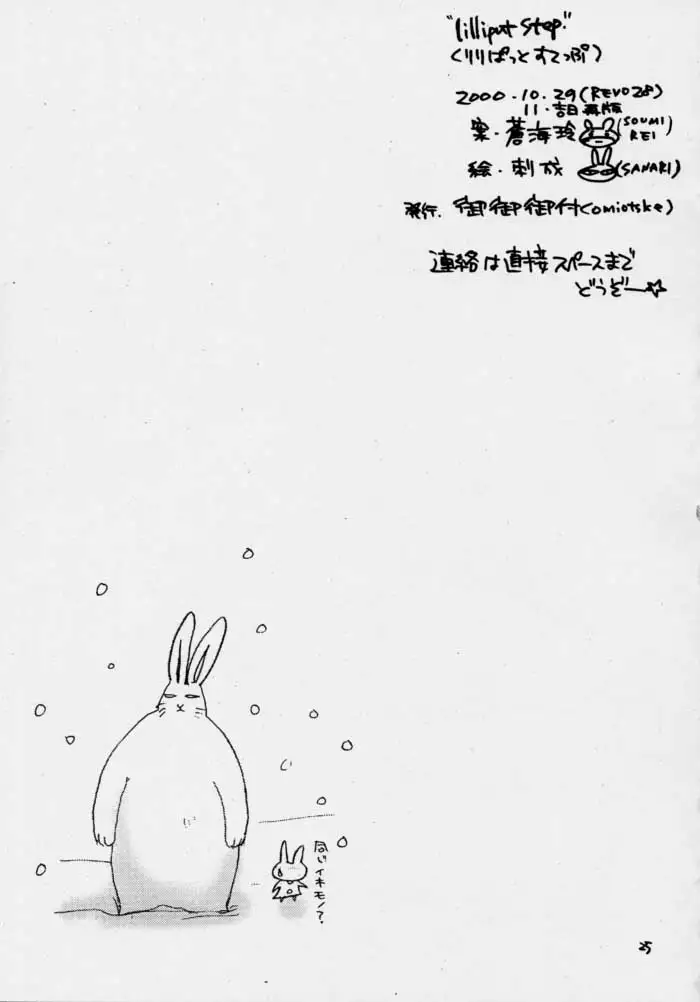 "lilliput step."
(りりぱっと すてっぷ)
2000.10.29(REVO28)
11.吉日再版
案・蒼海玲 (SOUMI REI)
絵・刺成 (SANARI)
発行.御御御付(omiotske)
連絡は直接スペースまで
どうぞー☆
同じイキモノ?
25